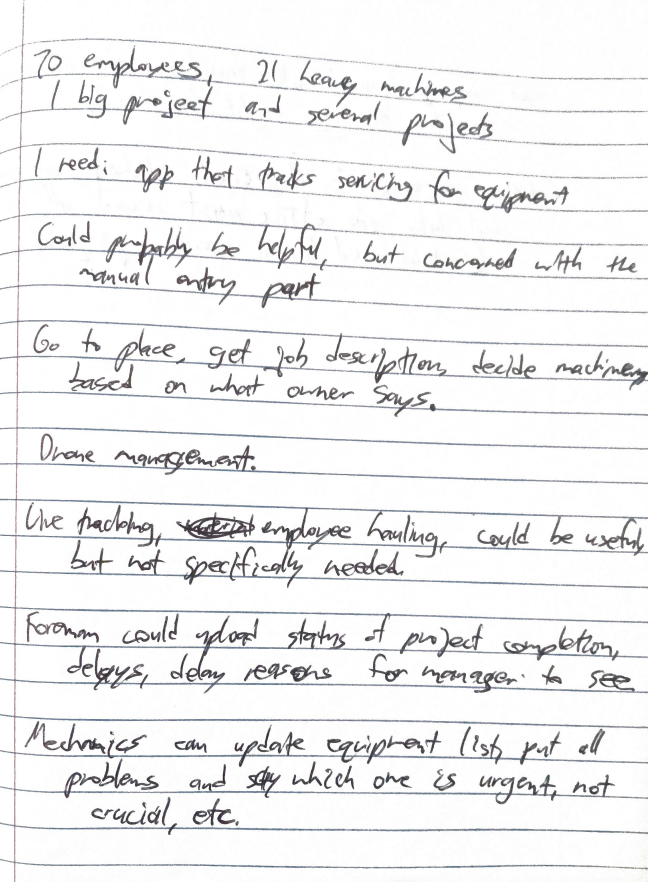 70 employees, 21 heavy machines
1 big project and several projects
I need: app that tracks servicing for equipment
Could probably be helpful, but concerned with the
manual entry part
Go to place, get job description, decide machinery
based on what owner says.
Drone management.
Live tracking, employee hauling, could be useful,
but not specifically needed.
Foreman could upload status of project completion,
delays, delay reasons for manager to see
Mechanics can update equipment list, put all
problems and say which one is urgent, not
crucial, etc.